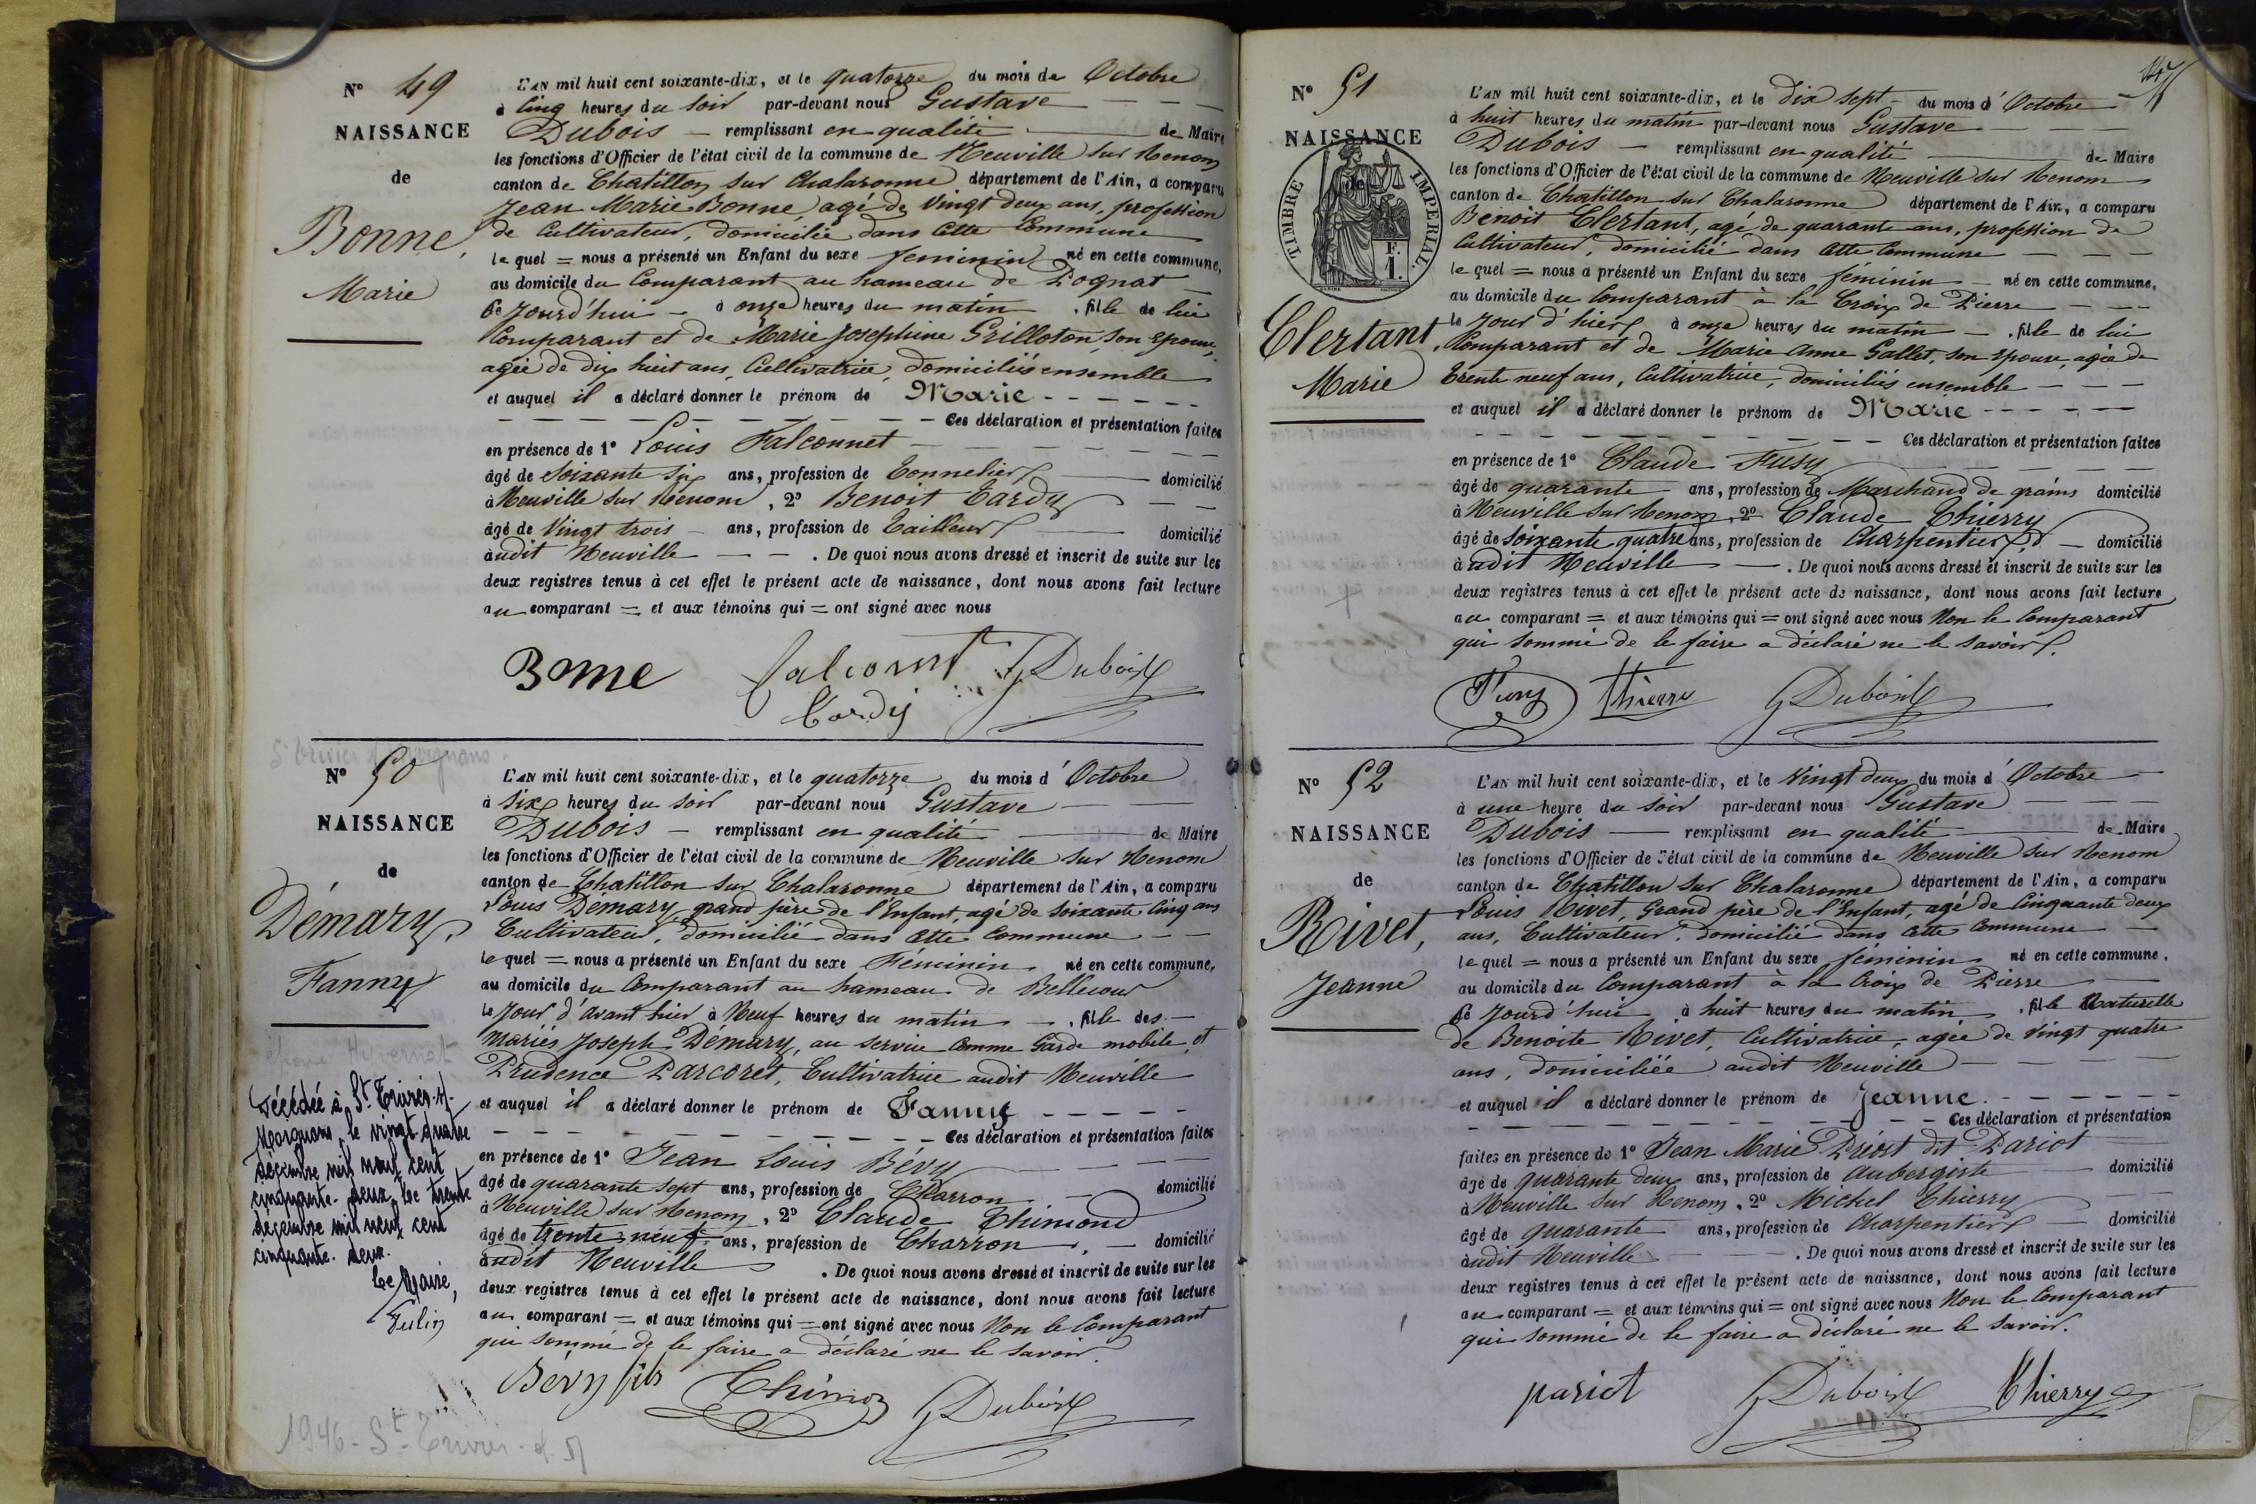 N° 49
NAISSANCE
de
Bonne,
Marie
L'AN mil huit cent soixante-dix, et le quatorze du mois de Octobre
à Cinq heures du soir par-devant nous Gustave
Dubois — remplissant en qualité de Maire
les fonctions d'Officier de l'état civil de la commune de Neuville sur Renom
canton de Chatillon sur Chalaronne département de l'Ain, a comparu
Jean Marie Bonne, agé de Vingt deux ans, profession
de Cultivateur, domicilié dans cette Commune
le quel = nous a présenté un Enfant du sexe féminin né en cette commune,
au domicile du Comparant au hameau de Pognat
Ce Jourd'hui — à onze heures du matin , fille de lui
Comparant et de Marie Josephine Grilloton, son Epouse,
agée de dix huit ans, Cultivatrice, domiciliés ensemble
et auquel il a déclaré donner le prénom de Marie - - - - - -
Ces déclaration et présentation faites
en présence de 1° Louis Falconnet
âgé de Soixante six ans, profession de Tonnelier domicilié
à Neuville sur Renom, 2° Benoit Tardy
âgé de Vingt trois — ans, profession de Tailleur domicilié
àudit Neuville — — . De quoi nous avons dressé et inscrit de suite sur les
deux registres tenus à cet effet le présent acte de naissance, dont nous avons fait lecture
au comparant = et aux témoins qui = ont signé avec nous
Bonne Falconnet G Dubois
Tardy
N° 50
NAISSANCE
de
Démary,
Fanny
Décédée à St. Trivier-s/-
Moignans le vingt quatre
décembre mil neuf cent
cinquante-deux, le trente
décembre mil neuf cent
cinquante-deux.
Le Maire,
1946 - St Trivier
L'AN mil huit cent soixante-dix, et le quatorze du mois d' Octobre
à Six heures du soir par-devant nous Gustave
Dubois — remplissant en qualité de Maire
les fonctions d'Officier de l'état civil de la commune de Neuville sur Renom
canton de Chatillon sur Chalaronne département de l'Ain, a comparu
Louis Démary, grand père de l'Enfant, agé de Soixante Cinq ans
Cultivateur, domicilié dans cette Commune
le quel = nous a présenté un Enfant du sexe Féminin, né en cette commune,
au domicile du Comparant au hameau de Bellecour
le Jour d'avant hier à Neuf heures du matin — , fille des —
mariés Joseph Démary, au service comme Garde mobile, et
Prudence Parcoret, Cultivatrice audit Neuville
et auquel il a déclaré donner le prénom de Fanny - - - - -
Ces déclaration et présentation faites
en présence de 1° Jean Louis Bévy
âgé de quarante sept ans, profession de Charron — domicilié
à Neuville sur Renom, 2° Claude Thimond
âgé de trente neuf ans, profession de Charron , — domicilié
àudit Neuville . De quoi nous avons dressé et inscrit de suite sur les
deux registres tenus à cet effet le présent acte de naissance, dont nous avons fait lecture
au comparant = et aux témoins qui = ont signé avec nous Non le Comparant
qui sommé de le faire a déclaré ne le savoir.
Bévy fils Thimon G Dubois
N° 51
NAISSANCE
de
TIMBRE IMPERIAL
F.
1.
Clertant,
Marie
L'AN mil huit cent soixante-dix, et le dix sept — du mois d' Octobre
à huit heures du matin par-devant nous Gustave
Dubois — remplissant en qualité de Maire
les fonctions d'Officier de l'état civil de la commune de Neuville sur Renom
canton de Chatillon sur Chalaronne département de l'Ain, a comparu
Benoit Clertant, agé de quarante ans, profession de
Cultivateur, domicilié dans cette Commune
le quel = nous a présenté un Enfant du sexe féminin né en cette commune,
au domicile du Comparant à la Croix de Pierre
le Jour d'hier à onze heures du matin — , fille de lui
Comparant et de Marie Anne Gallet, son Epouse, agée de
trente neuf ans, Cultivatrice, domiciliés ensemble
et auquel il a déclaré donner le prénom de Marie - - - - -
Ces déclaration et présentation faites
en présence de 1° Claude Fusy
âgé de quarante ans, profession de Marchand de grains domicilié
à Neuville sur Renom, 2° Claude Thierry
âgé de soixante quatre ans, profession de Charpentier — domicilié
àudit Neuville — . De quoi nous avons dressé et inscrit de suite sur les
deux registres tenus à cet effet le présent acte de naissance, dont nous avons fait lecture
au comparant = et aux témoins qui = ont signé avec nous Non le Comparant
qui sommé de le faire a déclaré ne le savoir.
Fusy Thierry G Dubois
N° 52
NAISSANCE
de
Rivet,
Jeanne
L'AN mil huit cent soixante-dix, et le Vingt deux du mois d' Octobre
à une heure du soir par-devant nous Gustave
Dubois — remplissant en qualité de Maire
les fonctions d'Officier de l'état civil de la commune de Neuville sur Renom
canton de Chatillon sur Chalaronne département de l'Ain, a comparu
Louis Rivet, Grand père de l'Enfant, agé de Cinquante deux
ans, Cultivateur, domicilié dans cette Commune
le quel = nous a présenté un Enfant du sexe féminin né en cette commune,
au domicile du Comparant à la Croix de Pierre
Ce Jourd'hui à huit heures du matin , fille Naturelle
de Benoite Rivet, Cultivatrice, agée de Vingt quatre
ans, domiciliée audit Neuville
et auquel il a déclaré donner le prénom de Jeanne. - - - - -
Ces déclaration et présentation
faites en présence de 1° Jean Marie Priost dit Pariot
âgé de quarante deux ans, profession de aubergiste domicilié
à Neuville sur Renom, 2° Michel Thierry
âgé de quarante ans, profession de Charpentier — domicilié
àudit Neuville . De quoi nous avons dressé et inscrit de suite sur les
deux registres tenus à cet effet le présent acte de naissance, dont nous avons fait lecture
au comparant = et aux témoins qui = ont signé avec nous Non le Comparant
qui sommé de le faire a déclaré ne le savoir.
pariot G Dubois Thierry